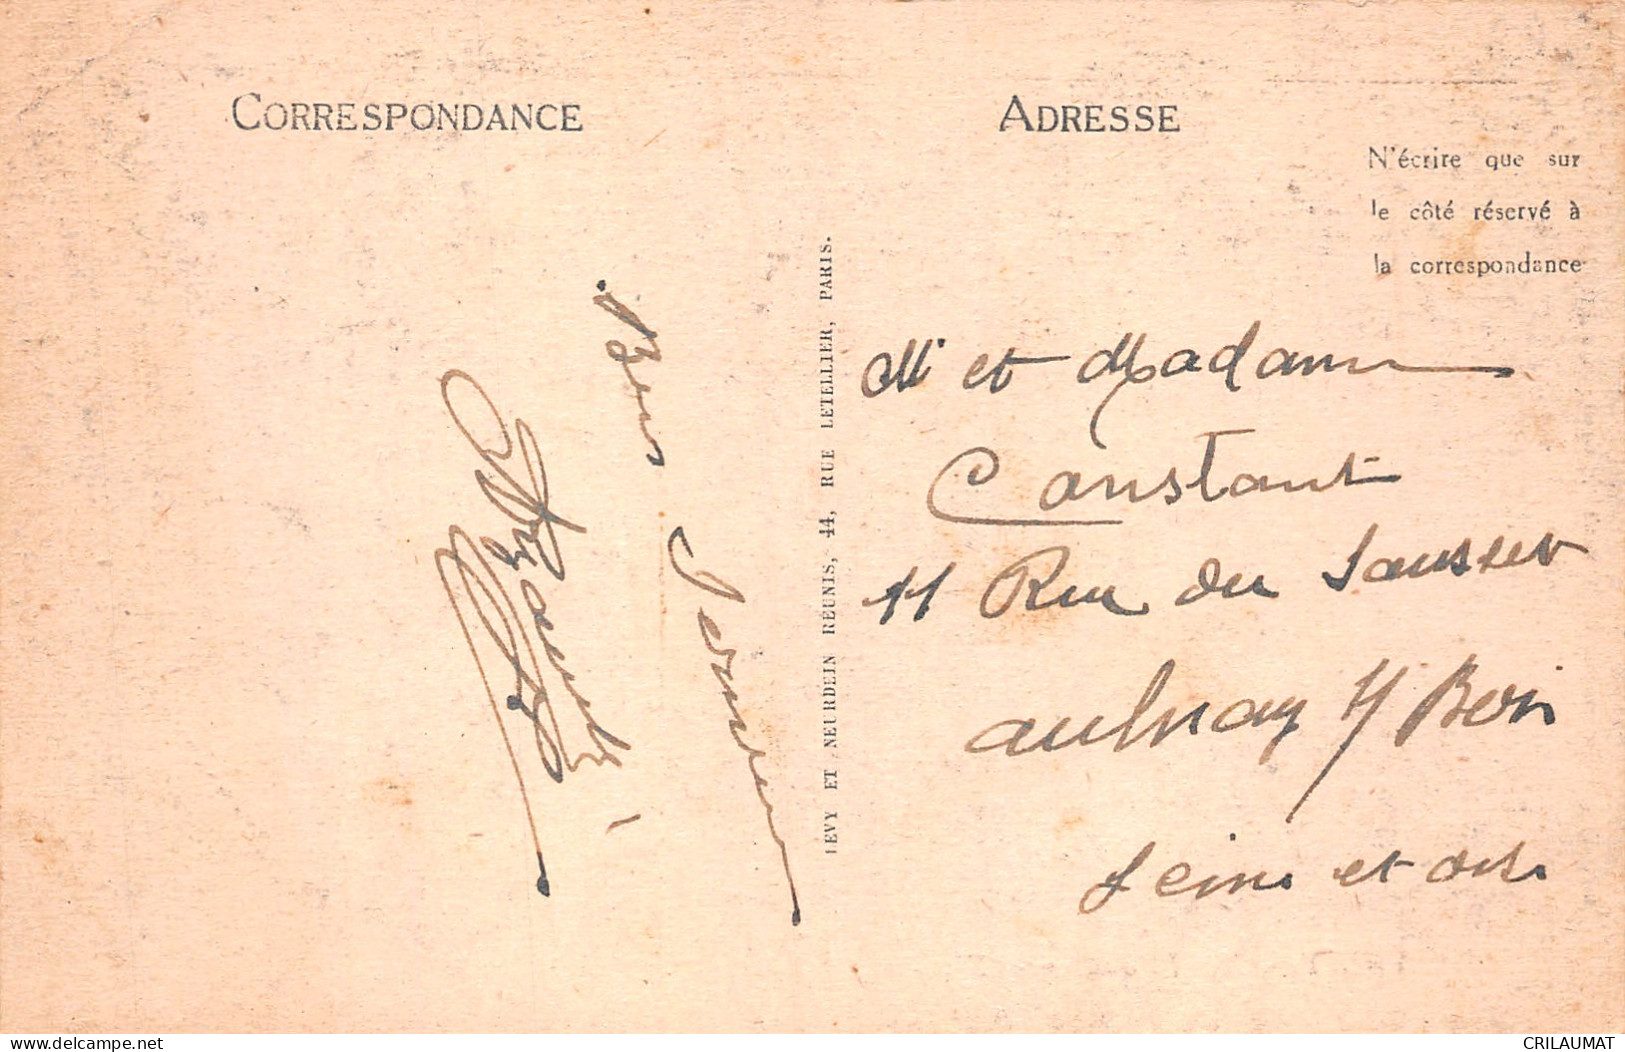 CORRESPONDANCE
Bons Souvenirs
ADRESSE
N'écrire que sur
le côté réservé à
la correspondance
LEVY ET NEURDEIN RÉUNIS, 44, RUE LETELLIER, PARIS.
Mr et Madame
Constant
11 Rue du Sausset
Aulnay s/ Bois
Seine et Oise
www.delcampe.net
CRILAUMAT